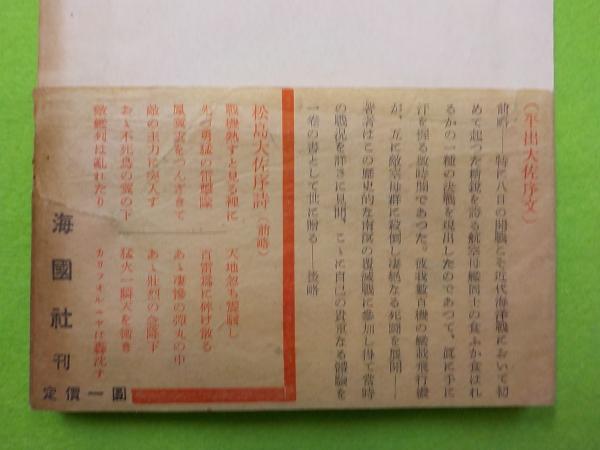 （平出大佐序文）
前略――特に八日の開戰こそ近代海洋戰において初
めて起つた精鋭を誇る航空母艦同士の食ふか食はれ
るかの一種の決戰を現出したのであつて、眞に手に
汗を握る數時間であつた。彼我數百機の艦載飛行機
が、互に敵空母群に殺到し凄愴なる死鬪を展開――
著者はこの歴史的な南溟の復滅戰に參加し得て當時
の戰況を詳さに見聞、こゝに自己の貴重なる體驗を
一卷の書として世に贈る――後略
松島大佐序詩（前略）
戰機熟すと見る裡に
先づ勇猛の雷爆隊
風翼翼をつんざきて
敵の主力に突入す
おゝ不死鳥の翼の下
敵戰列は亂れたり
天地忽ち震駭し
百雷爲に碎け散る
あゝ凄慘の彈丸の中
あゝ壯烈の急降下
猛火一瞬天を衝き
カリフオルニヤは轟沈す
海國社刊
定價一圓